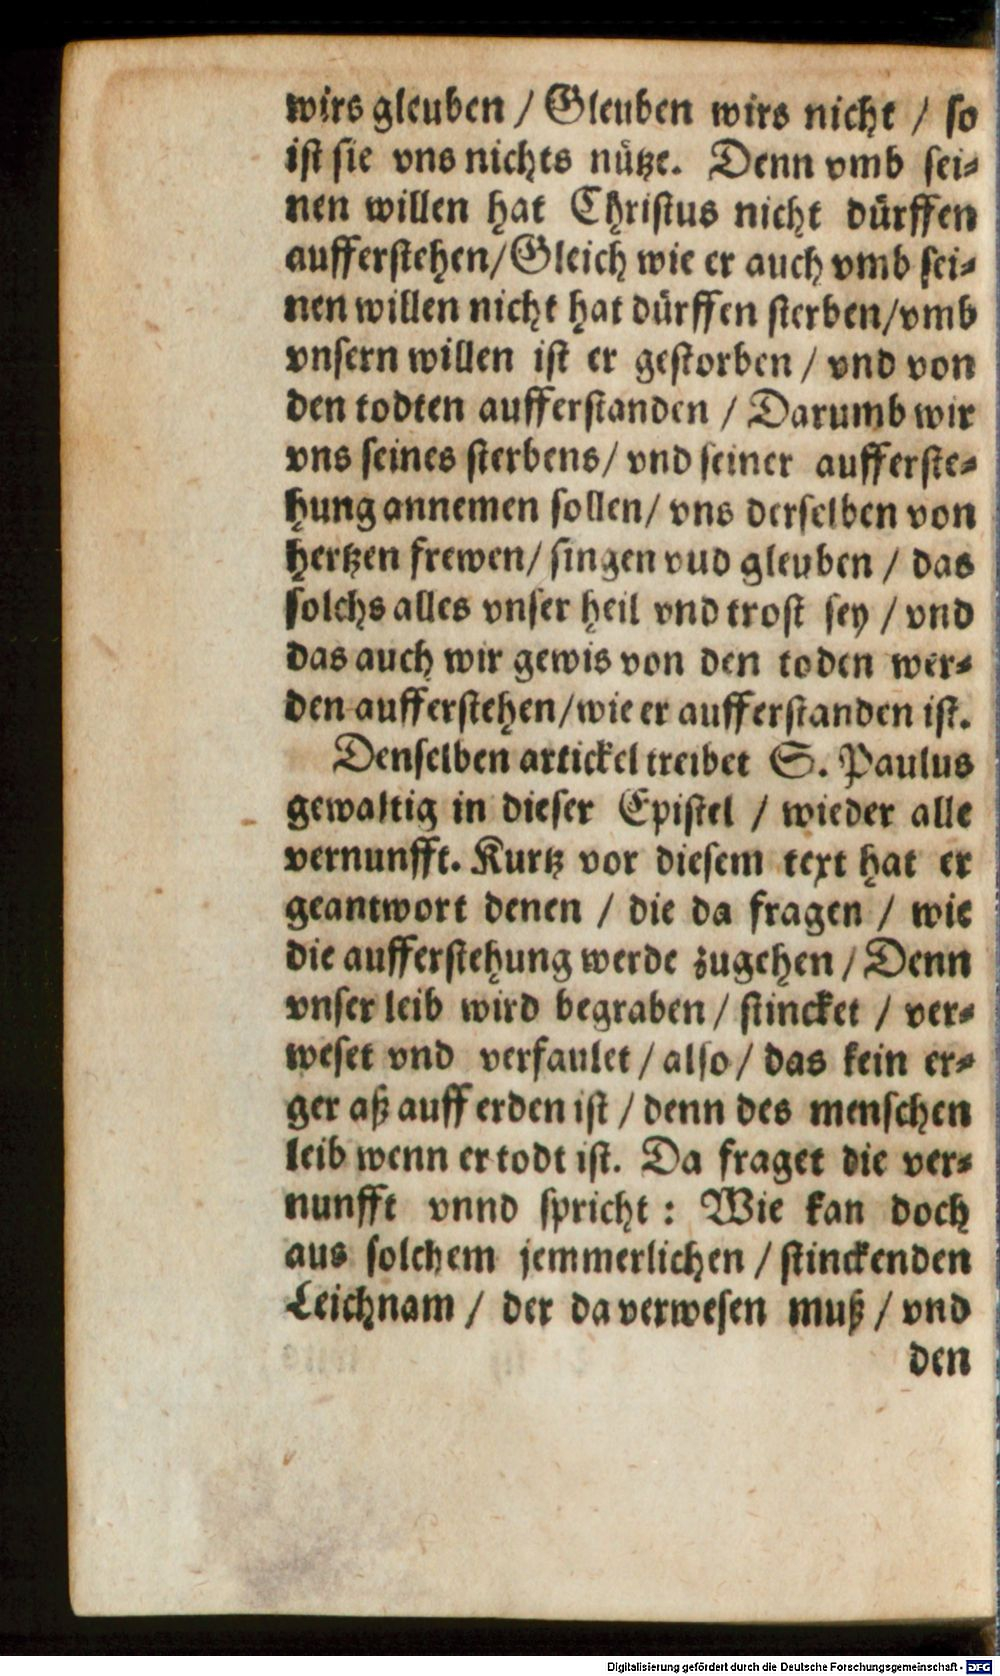 wirs gleuben / Gleuben wirs nicht / so
ist sie vns nichts nütze. Denn vmb sei-
nen willen hat Christus nicht dürffen
aufferstehen/Gleich wie er auch vmb sei-
nen willen nicht hat dürffen sterben/vmb
vnsern willen ist er gestorben / vnd von
den todten aufferstanden / Darumb wir
vns seines sterbens/ vnd seiner aufferste-
hung annemen sollen/ vns derselben von
hertzen frewen/ singen vud gleuben / das
solchs alles vnser heil vnd trost sey / vnd
das auch wir gewis von den toden wer-
den aufferstehen/wie er aufferstanden ist.
Denselben artickel treibet S. Paulus
gewaltig in dieser Epistel / wieder alle
vernunfft. Kurtz vor diesem text hat er
geantwort denen / die da fragen / wie
die aufferstehung werde zugehen / Denn
vnser leib wird begraben / stincket / ver-
weset vnd verfaulet / also / das kein er-
ger aß auff erden ist / denn des menschen
leib wenn er todt ist. Da fraget die ver-
nunfft vnnd spricht : Wie kan doch
aus solchem jemmerlichen / stinckenden
Leichnam / der da verwesen muß / vnd
den
Digitalisierung gefördert durch die Deutsche Forschungsgemeinschaft - DFG